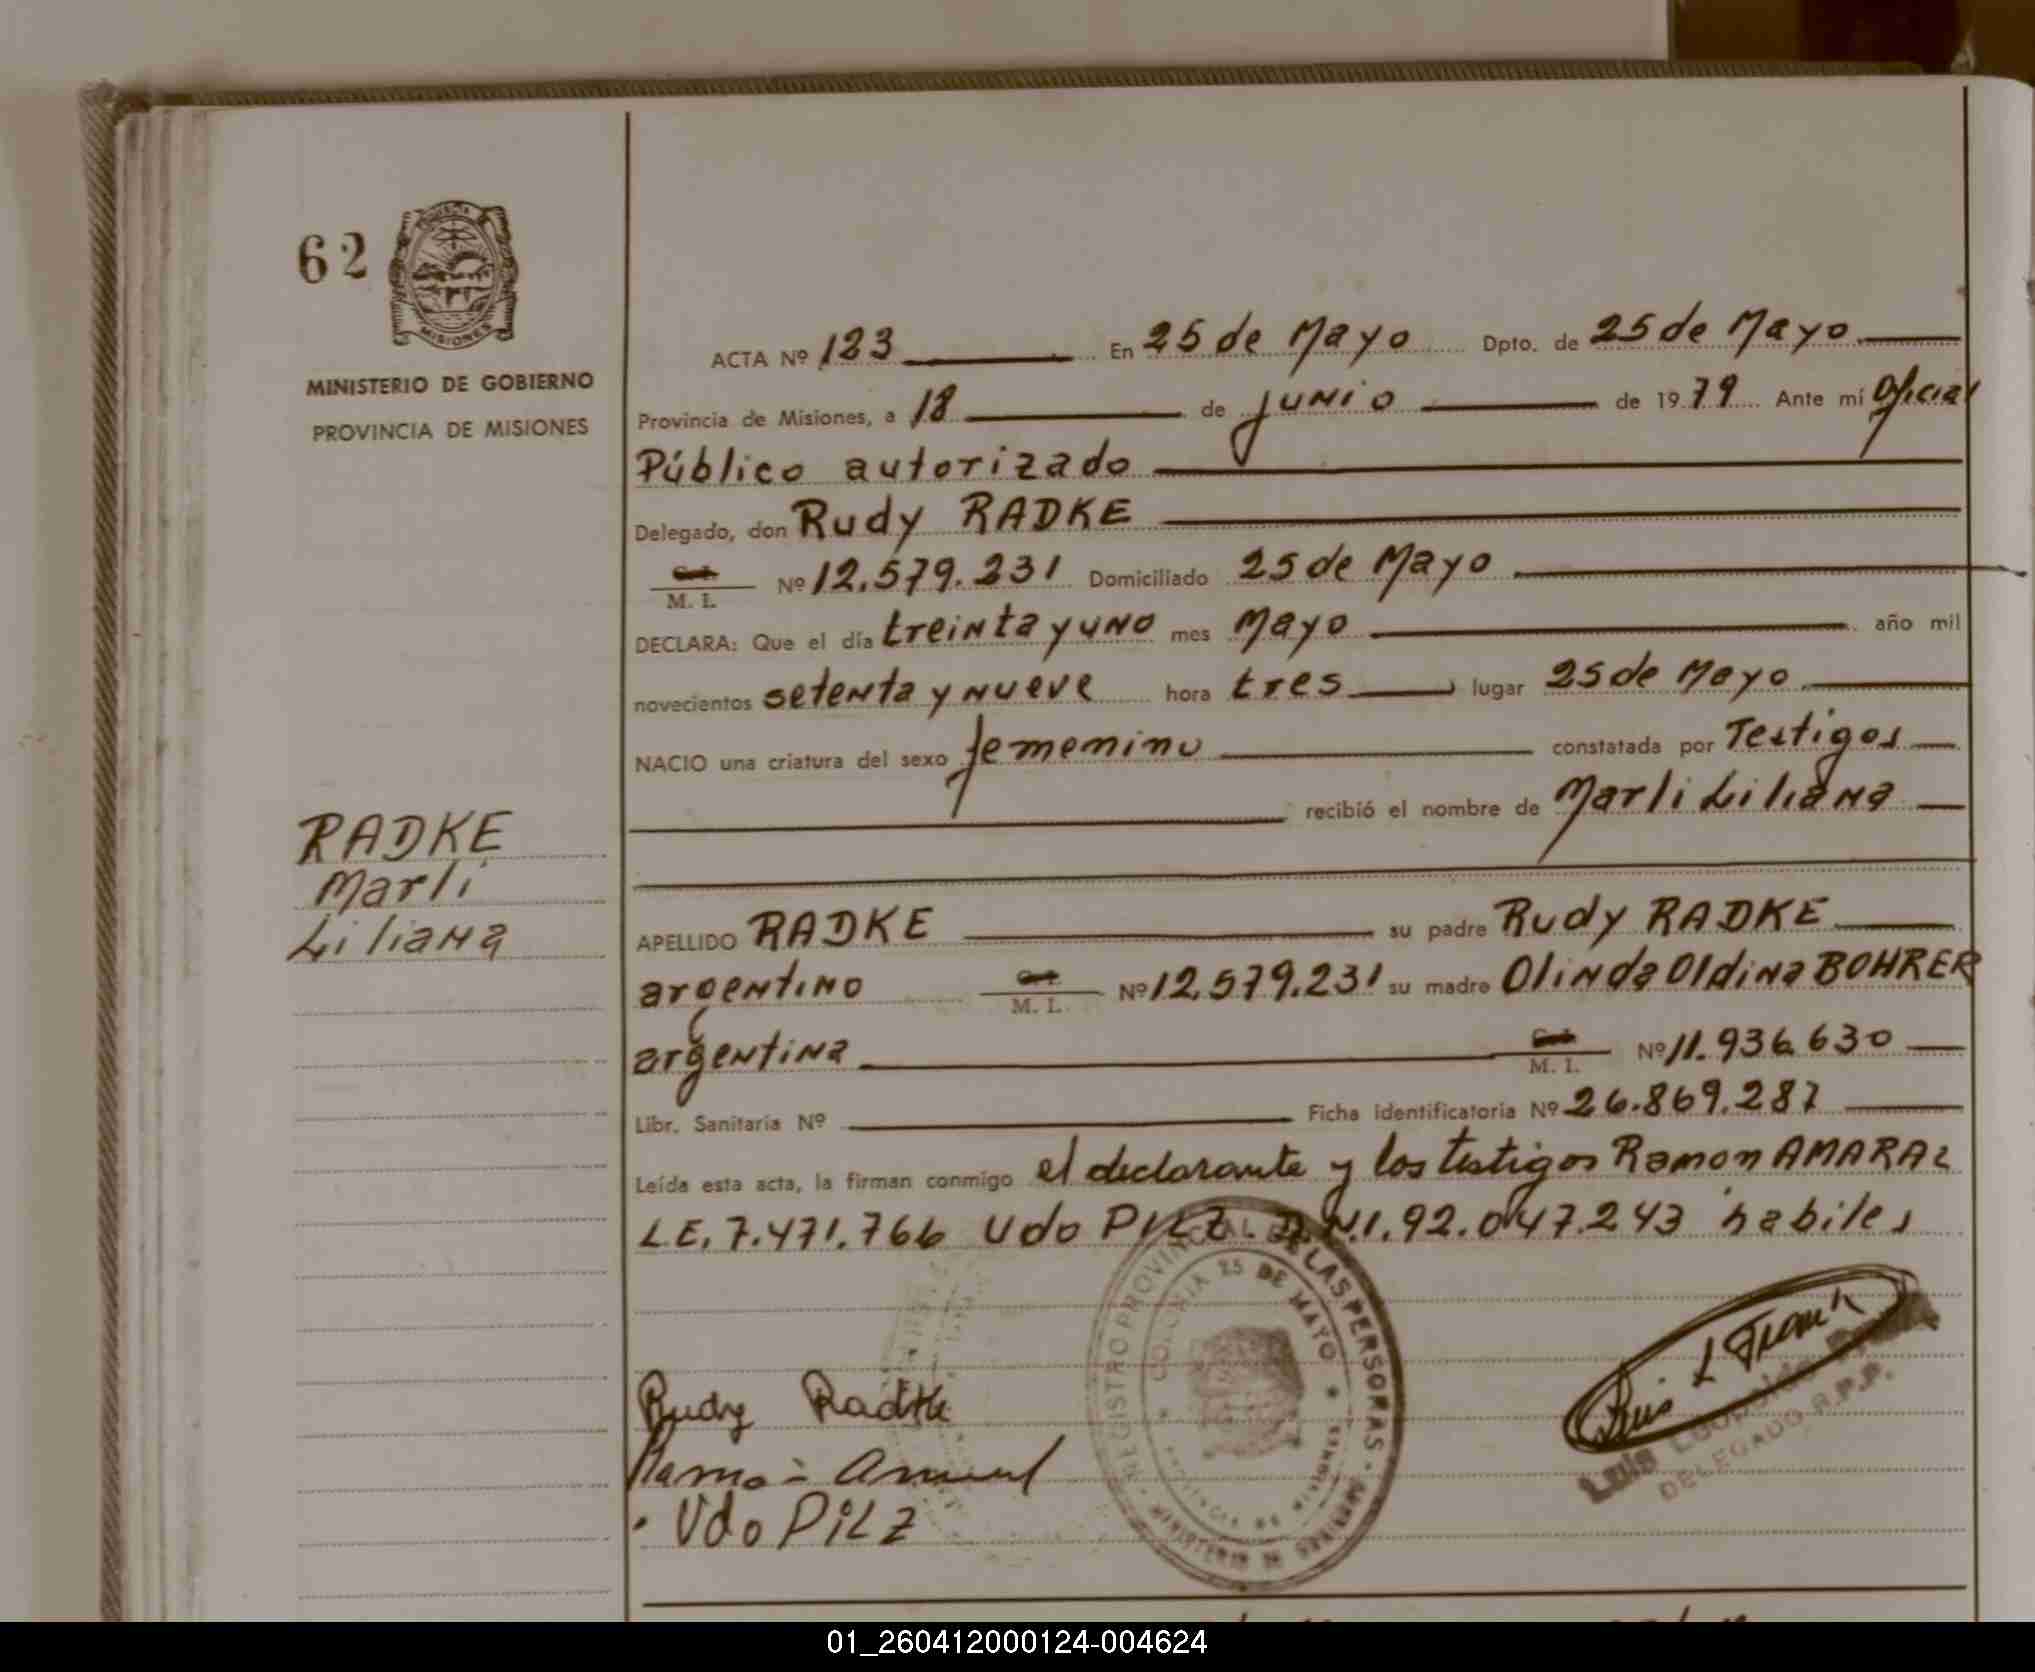 62
MISIONES
MINISTERIO DE GOBIERNO
PROVINCIA DE MISIONES
RADKE
Marli
Liliana
ACTA Nº 123 En 25 de Mayo Dpto. de 25 de Mayo
Provincia de Misiones, a 18 de junio de 1979 Ante mí Oficial
Público autorizado
Delegado, don Rudy RADKE
C.I. M. I. Nº 12.579.231 Domiciliado 25 de Mayo
DECLARA: Que el día treinta y uno mes Mayo año mil
novecientos setenta y nueve hora tres lugar 25 de Mayo
NACIO una criatura del sexo femenino constatada por Testigos
recibió el nombre de Marli Liliana
APELLIDO RADKE su padre Rudy RADKE
argentino C.I. M. I. Nº 12.579.231 su madre Olinda Oldina BOHRER
argentina C.I. M. I. Nº 11.936.630
Libr. Sanitaria Nº Ficha identificatoria Nº 26.869.287
Leída esta acta, la firman conmigo el declarante y los testigos Ramon AMARAL
L.E. 7.471.766 Udo PILZ D.N.I. 92.047.243 habiles
REGISTRO PROVINCIAL DE LAS PERSONAS
COLONIA 25 DE MAYO
PROVINCIA DE MISIONES
MINISTERIO DE
Rudy Radke
Udo PILZ
Luis L
Luis Leopoldo
DELEGADO R.P.P.
01_260412000124-004624